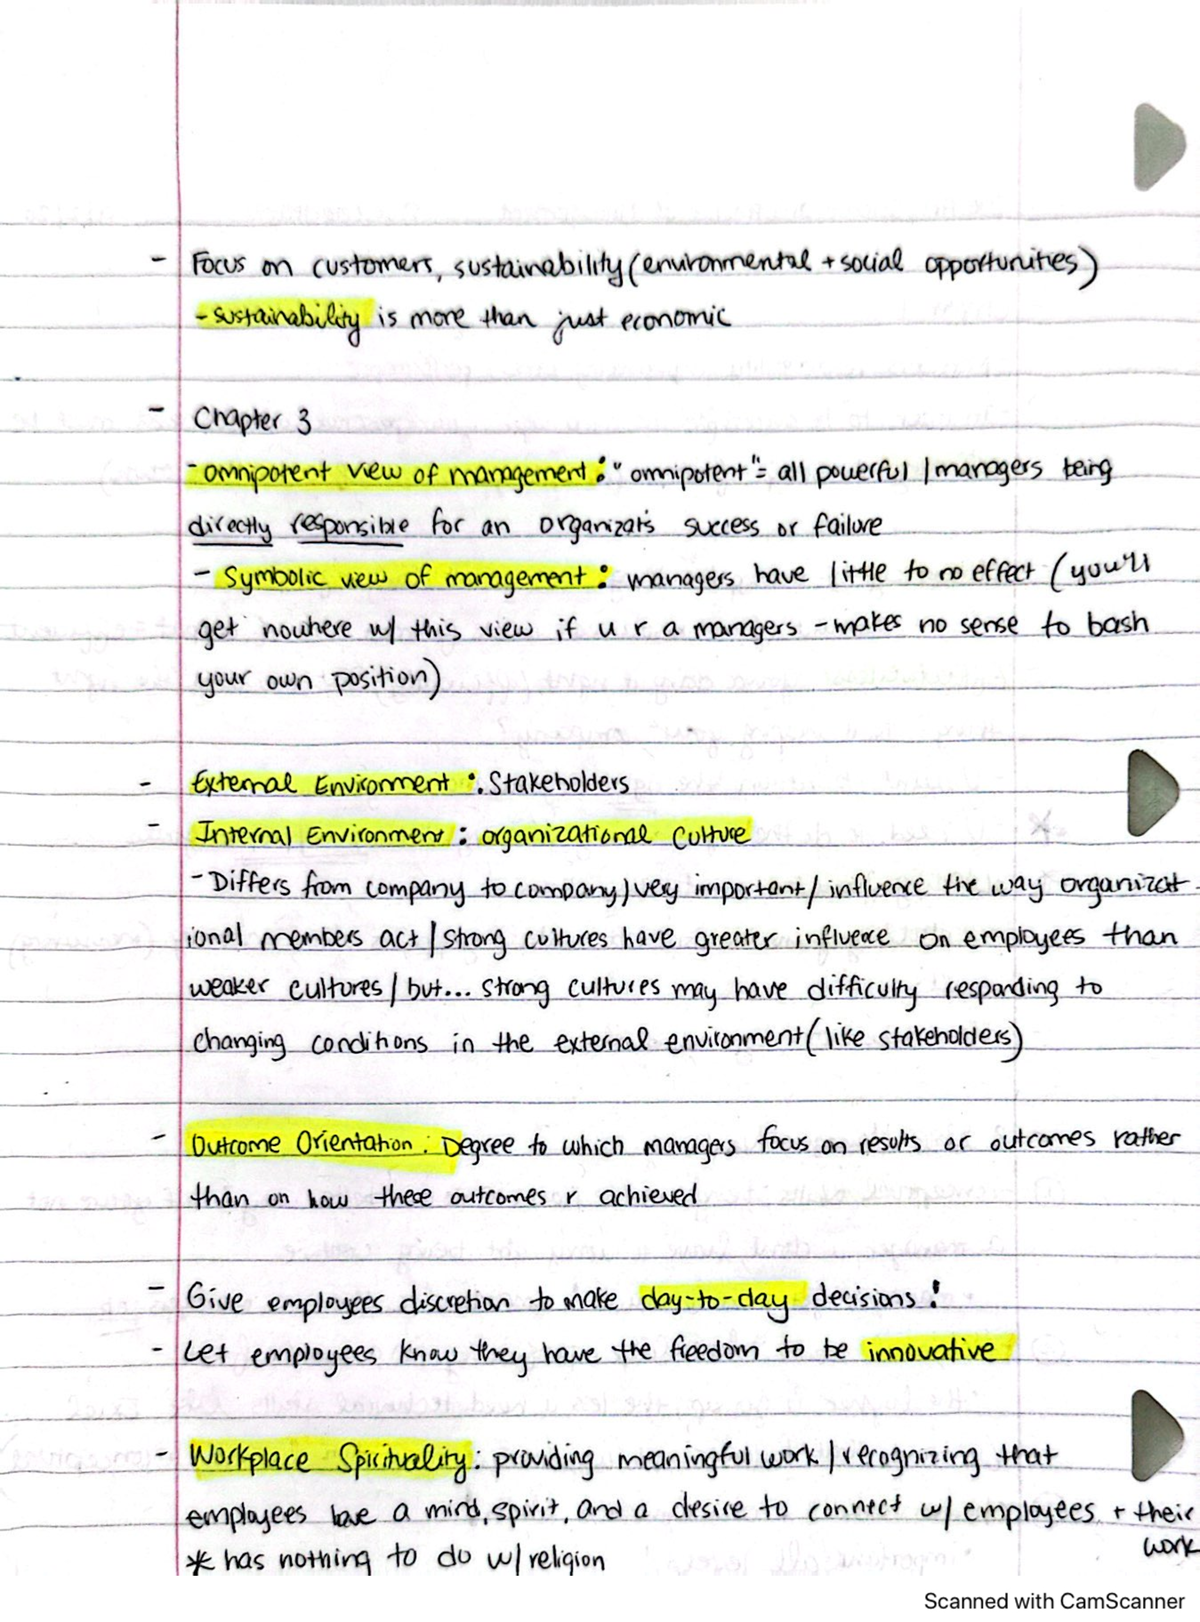 - Focus on customers, sustainability (environmental + social opportunities)
- sustainability is more than just economic
- Chapter 3
- omnipotent view of management : "omnipotent" = all powerful / managers being
directly responsible for an organizat's success or failure
- Symbolic view of management : managers have little to no effect (you'll
get nowhere w/ this view if u r a managers - makes no sense to bash
your own position)
- External Enviroment : Stakeholders
- Internal Environment : organizational Culture
- Differs from company to company / very important / influence the way organizat-
ional members act / strong cultures have greater influence on employees than
weaker cultures / but... strong cultures may have difficulty responding to
changing conditions in the external environment (like stakeholders)
- Outcome Orientation : Degree to which managers focus on results or outcomes rather
than on how these outcomes r achieved
- Give employees discretion to make day-to-day decisions!
- Let employees know they have the freedom to be innovative
- Workplace Spirituality : providing meaningful work / recognizing that
employees have a mind, spirit, and a desire to connect w/ employees + their
work
* has nothing to do w/ religion
Scanned with CamScanner